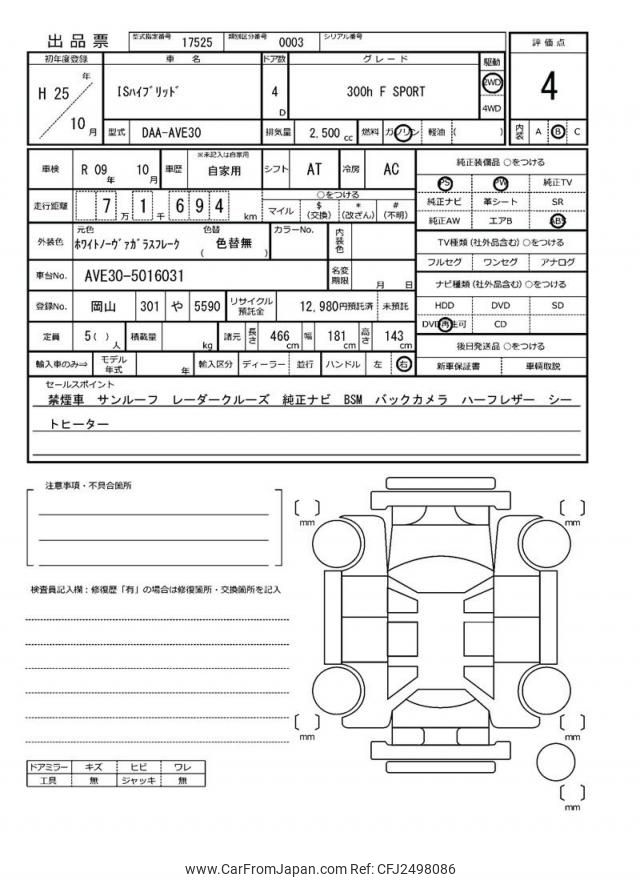 出品票 型式指定番号 17525 類別区分番号 0003 シリアル番号
初年度登録 車 名 ドア数 グレード 駆動 評価点
H 25 年 10 月 ISハイブリッド 4 D 300h F SPORT 2WD 4WD 4
型式 DAA-AVE30 排気量 2,500 cc 燃料 ガソリン 軽油 ( ) 内装 A B C
車検 R 09 年 10 月 車歴 ※未記入は自家用 自家用 シフト AT 冷房 AC 純正装備品 ○をつける
PS PW 純正TV
走行距離 7 万 1 千 6 9 4 km ○をつける
マイル $ (交換) * (改ざん) # (不明) 純正ナビ 革シート SR
純正AW エアB ABS
外装色 元色 ホワイトノーヴァガラスフレーク 色替 ( 色替無 ) カラーNo. 内装色 TV種類 (社外品含む) ○をつける
フルセグ ワンセグ アナログ
車台No. AVE30-5016031 名変期限 月 日 ナビ種類 (社外品含む) ○をつける
登録No. 岡山 301 や 5590 リサイクル預託金 12,980円預託済 未預託 HDD DVD SD
DVD再生可 CD
定員 5( ) 人 積載量 kg 諸元 長さ 466 cm 幅 181 cm 高さ 143 cm 後日発送品 ○をつける
輸入車のみ⇒ モデル年式 年 輸入区分 ディーラー 並行 ハンドル 左 右 新車保証書 車輌取説
セールスポイント
禁煙車 サンルーフ レーダークルーズ 純正ナビ BSM バックカメラ ハーフレザー シー
トヒーター
注意事項・不具合箇所
mm mm
検査員記入欄：修復歴「有」の場合は修復箇所・交換箇所を記入
mm mm
ドアミラー キズ ヒビ ワレ
工具 無 ジャッキ 無
mm
www.CarFromJapan.com Ref: CFJ2498086